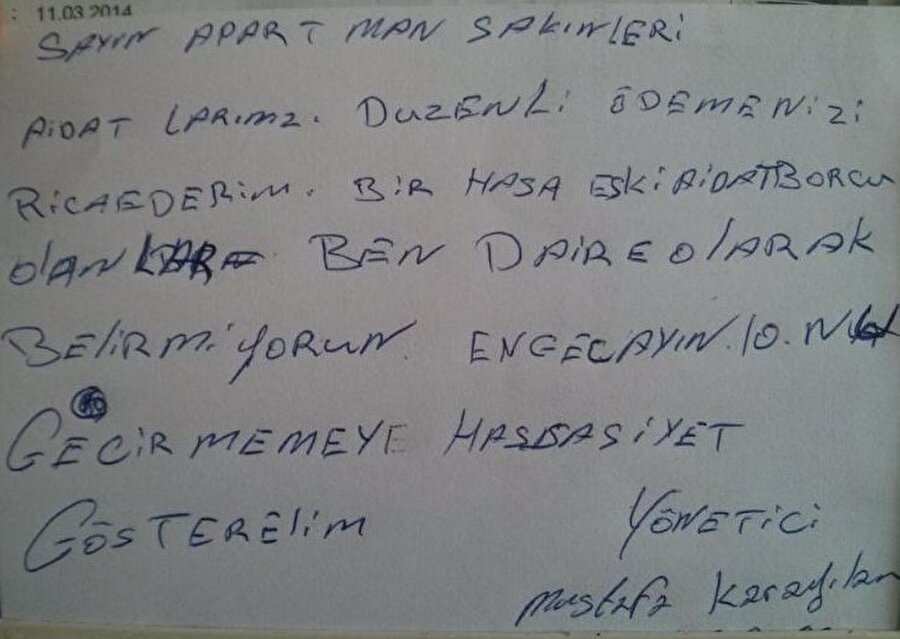 : 11.03.2014
SAYIN APART MAN SAKINLERİ
AİDAT LARIMZ. DUZENLİ ÖDEMENİZİ
RİCAEDERİM. BİR HASA ESKİ AİDATBORCU
OLAN BEN DAİRE OLARAK
BELİRMİYORUN. ENGECAYIN.10.NU
GECİRMEMEYE HASSASİYET
GÖSTERELİM YÖNETİCİ
Mustafa Karayılan